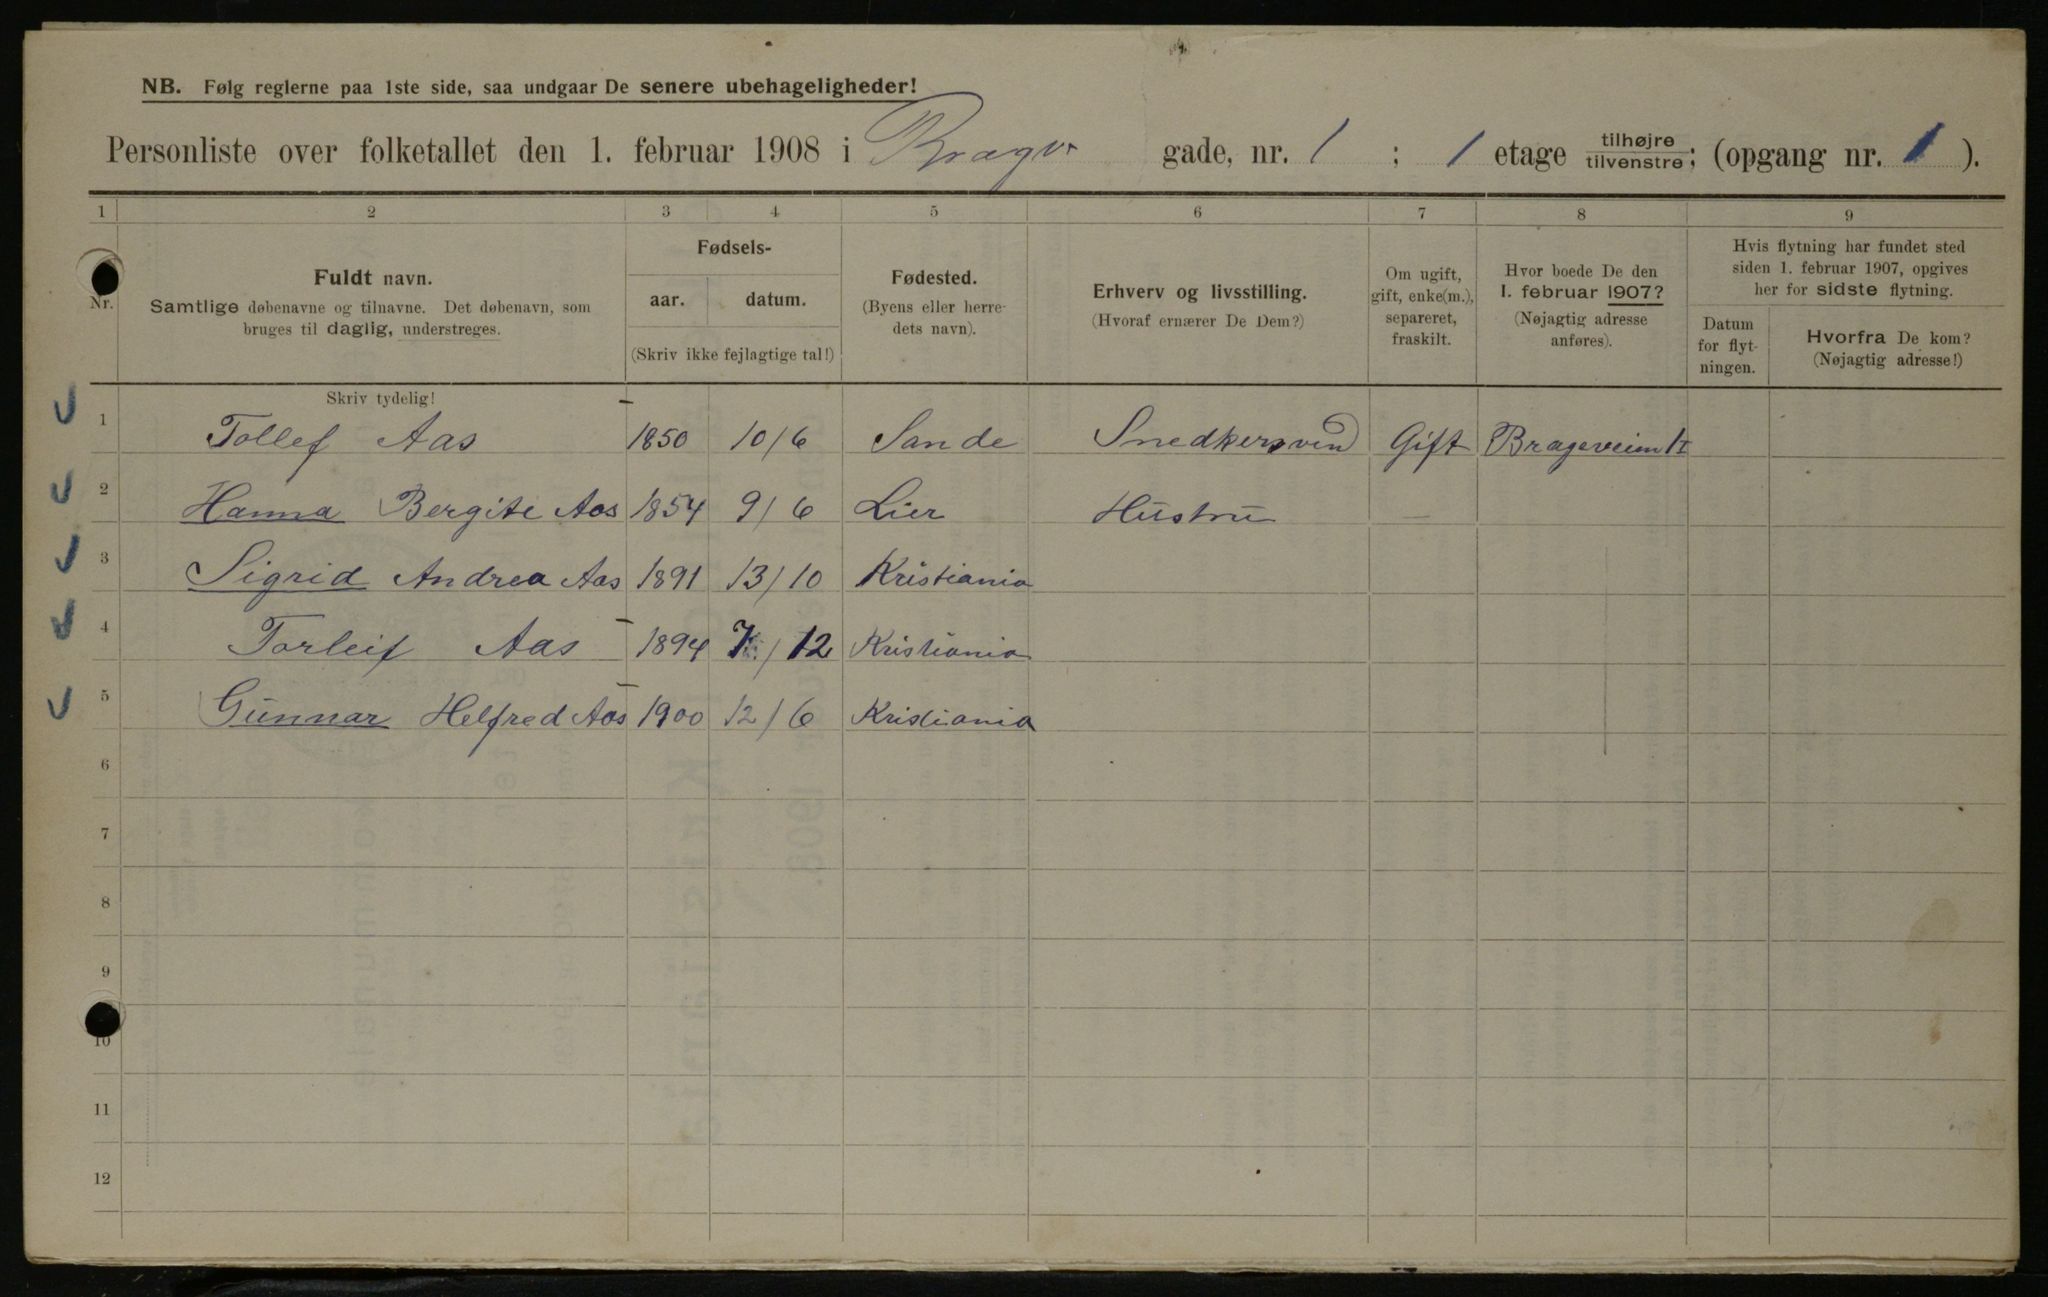 NB. Følg reglerne paa 1ste side, saa undgaar De senere ubehageligheder!
Personliste over folketallet den 1. februar 1908 i Bragv gade, nr. 1 ; 1 etage tilhøjre tilvenstre; (opgang nr. 1 ).
1 2 3 4 5 6 7 8 9
Nr.
Fuldt navn.
Samtlige døbenavne og tilnavne. Det døbenavn, som
bruges til daglig, understreges.
Fødsels-
aar. datum.
(Skriv ikke fejlagtige tal!)
Fødested.
(Byens eller herre-
dets navn).
Erhverv og livsstilling.
(Hvoraf ernærer De Dem?)
Om ugift,
gift, enke(m.),
separeret,
fraskilt.
Hvor boede De den
1. februar 1907?
(Nøjagtig adresse
anføres).
Hvis flytning har fundet sted
siden 1. februar 1907, opgives
her for sidste flytning.
Datum
for flyt-
ningen.
Hvorfra De kom?
(Nøjagtig adresse!)
Skriv tydelig!
1 Tollef Aas 1850 10/6 Sande Snedkersvend Gift Brageveien 1
2 Hanna Bergite Aas 1854 9/6 Lier Hustru —
3 Sigrid Andrea Aas 1891 13/10 Kristiania
4 Torleif Aas 1894 7/12 Kristiania
5 Gunnar Helfred Aas 1900 12/6 Kristiania
6
7
8
9
10
11
12